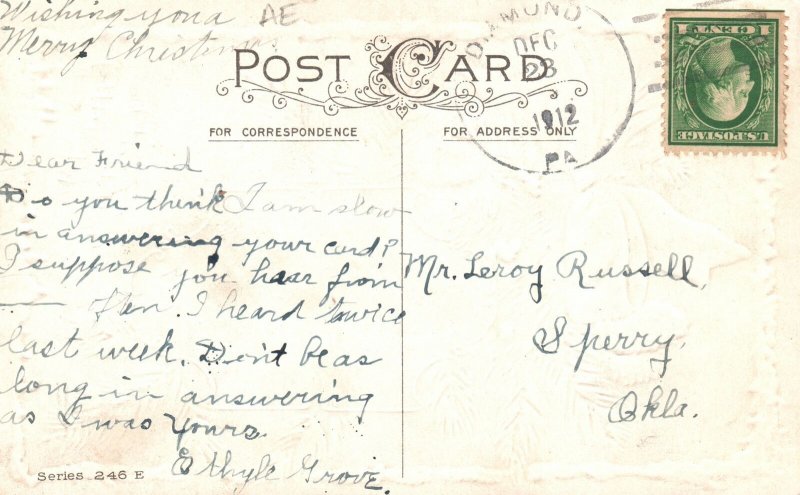 Wishing you a
Merry Christmas
AE
DIAMOND
DEC
23
1912
PA
1 CENT 1
U.S. POSTAGE
POST CARD
FOR CORRESPONDENCE
FOR ADDRESS ONLY
Dear Friend
Do you think I am slow
in answering your card?
I suppose you hear from
—— I heard twice
last week. Don't be as
long in answering
as I was Yours
Ethyle Grove.
Mr. Leroy Russell,
Sperry,
Okla.
Series 246 E